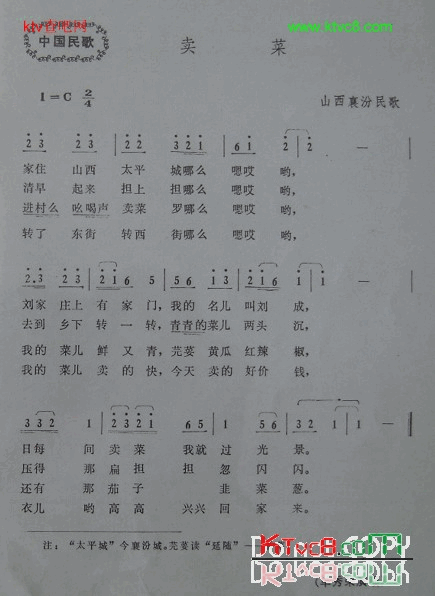 ktv香吧网
www.ktvc8.com
中国民歌
卖 菜
1=C 2/4
山西襄汾民歌
2 3 2 3 2 1 2 6 1 2 2 —
家住 山西 太平 城哪么 嗯哎 哟,
清早 起来 担上 担哪么 嗯哎 哟,
进村么 吆喝声 卖菜 罗哪么 嗯哎 哟,
转了 东街 转西 街哪么 嗯哎 哟,
2.3 2 3 2 1 6 5 5 1 2 3 2 1 6 1 1 —
刘家 庄上 有 家门,我的 名儿 叫刘 成,
去到 乡下 转 一 转,青青的 菜儿 两头 沉,
我的 菜儿 鲜 又 青,芫荽 黄瓜 红辣 椒,
我的 菜儿 卖 的 快,今天 卖的 好价 钱,
3 3 2 1 2 3 2 1 6 5 1 5 6 3 2 1 —
日每 间 卖菜 我就 过 光 景。
压得 那 扁担 担 忽 闪闪。
还有 那 茄子 韭 菜 葱。
衣儿 哟 高高 兴兴 回 家 来。
注:“太平城”今襄汾城。芫荽读“延随”
KTvc8.com
DO NOT COPY